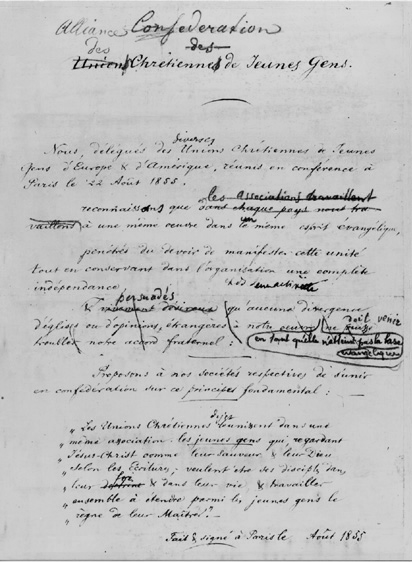 Alliance Confédération
des des
Unions Chrétiennes de Jeunes Gens.
diverses
Nous, délégués des Unions Chrétiennes de Jeunes
Gens d'Europe & d'Amérique, réunis en conférence à
Paris le 22 Août 1855,
les associations travaillent
reconnaissons que dans chaque pays nous tra
vaillons à une même œuvre dans le même esprit évangélique,
un
pénétrés du devoir de manifester cette unité
tout en conservant dans l'organisation une complète
indépendance,
persuadés
& vivement désireux qu'aucune divergence
d'églises ou d'opinions, étrangères à notre œuvre, ne doit venir
troubler notre accord fraternel :
en tant qu'elle n'atteint pas la base
évangélique
Proposons à nos sociétés respectives de s'unir
en confédération sur ce principe fondamental :
„ Les Unions Chrétiennes réunissent dans une
„ même association les jeunes gens qui, regardant
„ Jésus-Christ comme leur Sauveur & leur Dieu
„ selon les Écritures, veulent être ses disciples dans
„ leur foi & dans leur vie & travailler
„ ensemble à étendre parmi les jeunes gens le
„ règne de leur Maître."
Fait & signé à Paris le Août 1855